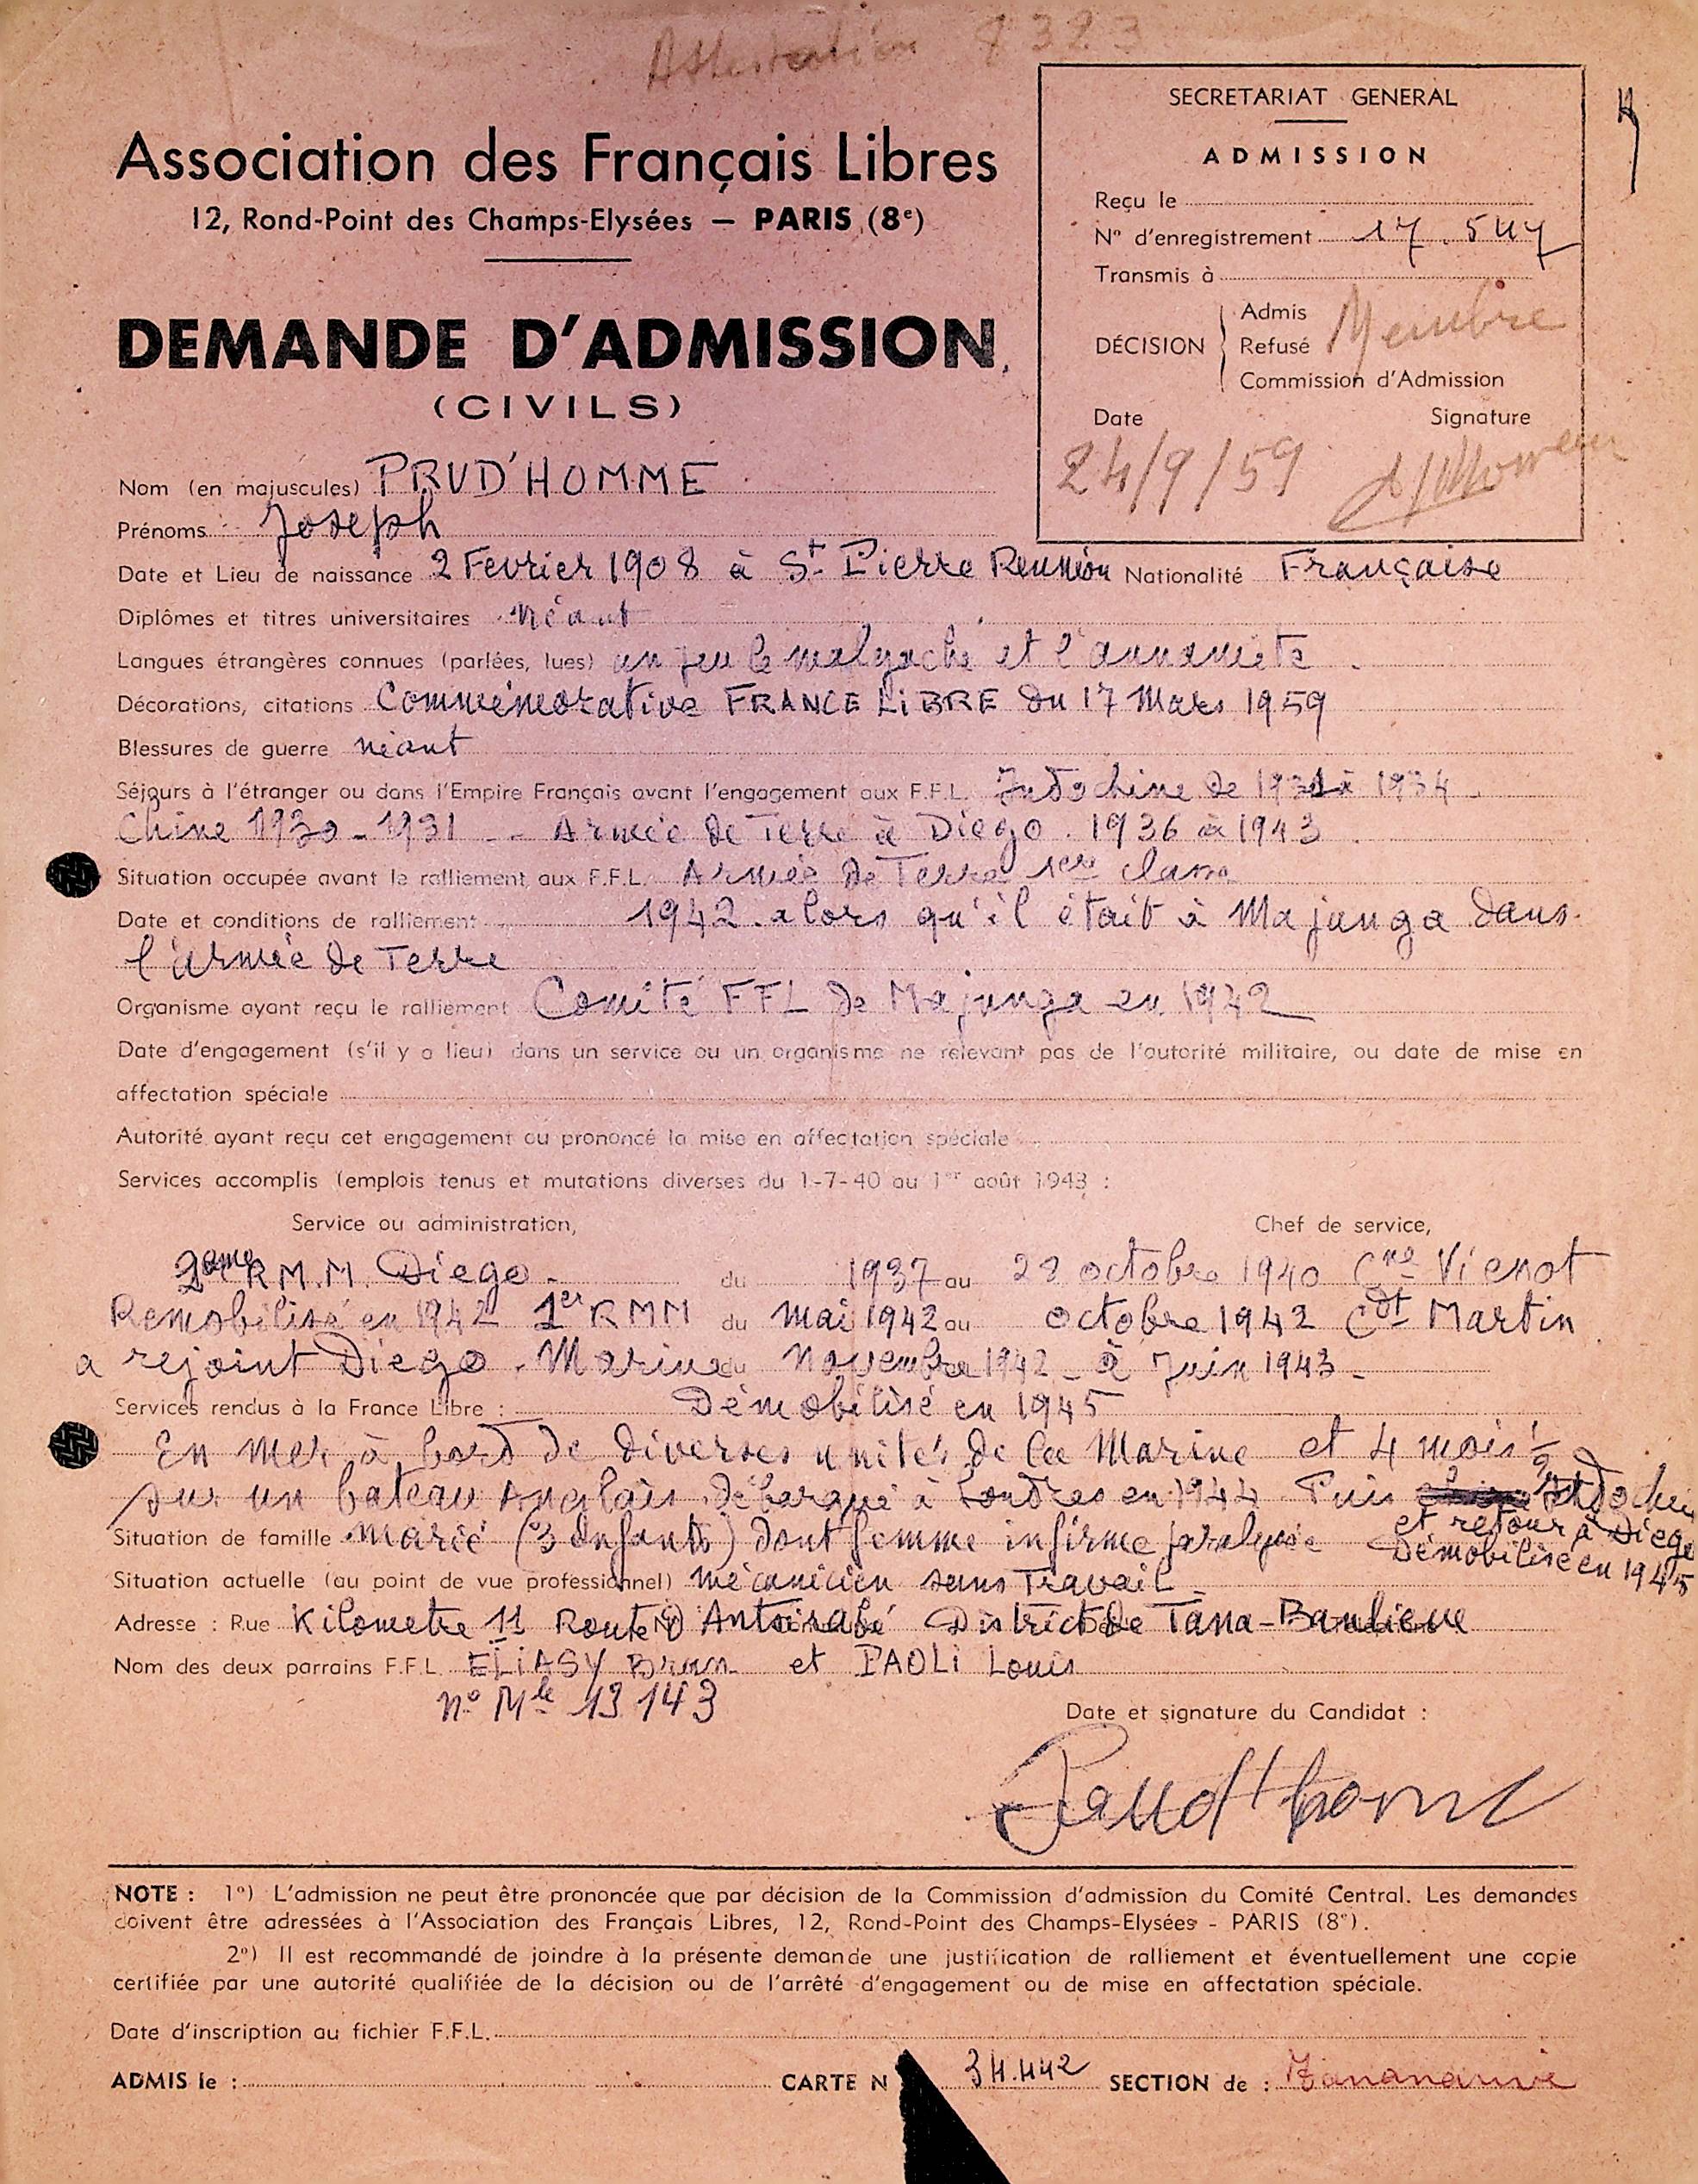 Attestation 8323
SECRETARIAT GENERAL
ADMISSION
Reçu le
N° d'enregistrement 17.547
Transmis à
DÉCISION
Admis
Refusé
Commission d'Admission
Membre
Date
Signature
24/9/59
Association des Français Libres
12, Rond-Point des Champs-Elysées — PARIS (8e)
DEMANDE D'ADMISSION
(CIVILS)
Nom (en majuscules) PRUD'HOMME
Prénoms Joseph
Date et Lieu de naissance 2 Fevrier 1908 à St Pierre Reunion Nationalité Française
Diplômes et titres universitaires Néant
Langues étrangères connues (parlées, lues) un peu le malgache et l'annamite
Décorations, citations Commémorative FRANCE LiBRE du 17 Mars 1959
Blessures de guerre néant
Séjours à l'étranger ou dans l'Empire Français avant l'engagement aux F.F.L. Indochine de 1931 à 1934
Chine 1930-1931 - Armée de Terre à Diego. 1936 à 1943
Situation occupée avant le ralliement aux F.F.L. Armée de Terre 1ere classe
Date et conditions de ralliement 1942 alors qu'il était à Majunga dans
l'Armée de Terre
Organisme ayant reçu le ralliement Comité FFL de Majunga en 1942
Date d'engagement (s'il y a lieu) dans un service ou un organisme ne relevant pas de l'autorité militaire, ou date de mise en
affectation spéciale
Autorité ayant reçu cet engagement ou prononcé la mise en affectation spéciale
Services accomplis (emplois tenus et mutations diverses du 1-7-40 au 1er août 1943 :
Service ou administration,
Chef de service,
2eme RMM. Diego. du 1937 au 28 octobre 1940 Cne Vienot
Remobilisé en 1942 1er RMM du mai 1942 au octobre 1942 Cdt Martin
a rejoint Diego. Marine du Novembre 1942 à Juin 1943.
Services rendus à la France Libre : Démobilisé en 1945
En mer à bord de diverses unités de la Marine et 4 mois 1/2
sur un bateau Anglais débarqué à Londres en 1944 Puis Indochine
et retour à Diego
Démobilisé en 1945
Situation de famille Marié (3 enfants) dont femme infirme paralysée
Situation actuelle (au point de vue professionnel) mécanicien sans Travail
Adresse : Rue Kilometre 11 Route d'Antsirabé District de Tana-Banlieue
Nom des deux parrains F.F.L. ELIASY et PAOLi Louis
n° Mle 13143
Date et signature du Candidat :
Prud'home
NOTE : 1°) L'admission ne peut être prononcée que par décision de la Commission d'admission du Comité Central. Les demandes
doivent être adressées à l'Association des Français Libres, 12, Rond-Point des Champs-Elysées - PARIS (8e).
2°) Il est recommandé de joindre à la présente demande une justification de ralliement et éventuellement une copie
certifiée par une autorité qualifiée de la décision ou de l'arrêté d'engagement ou de mise en affectation spéciale.
Date d'inscription au fichier F.F.L.
ADMIS le : CARTE N 34.442 SECTION de : Tananarive